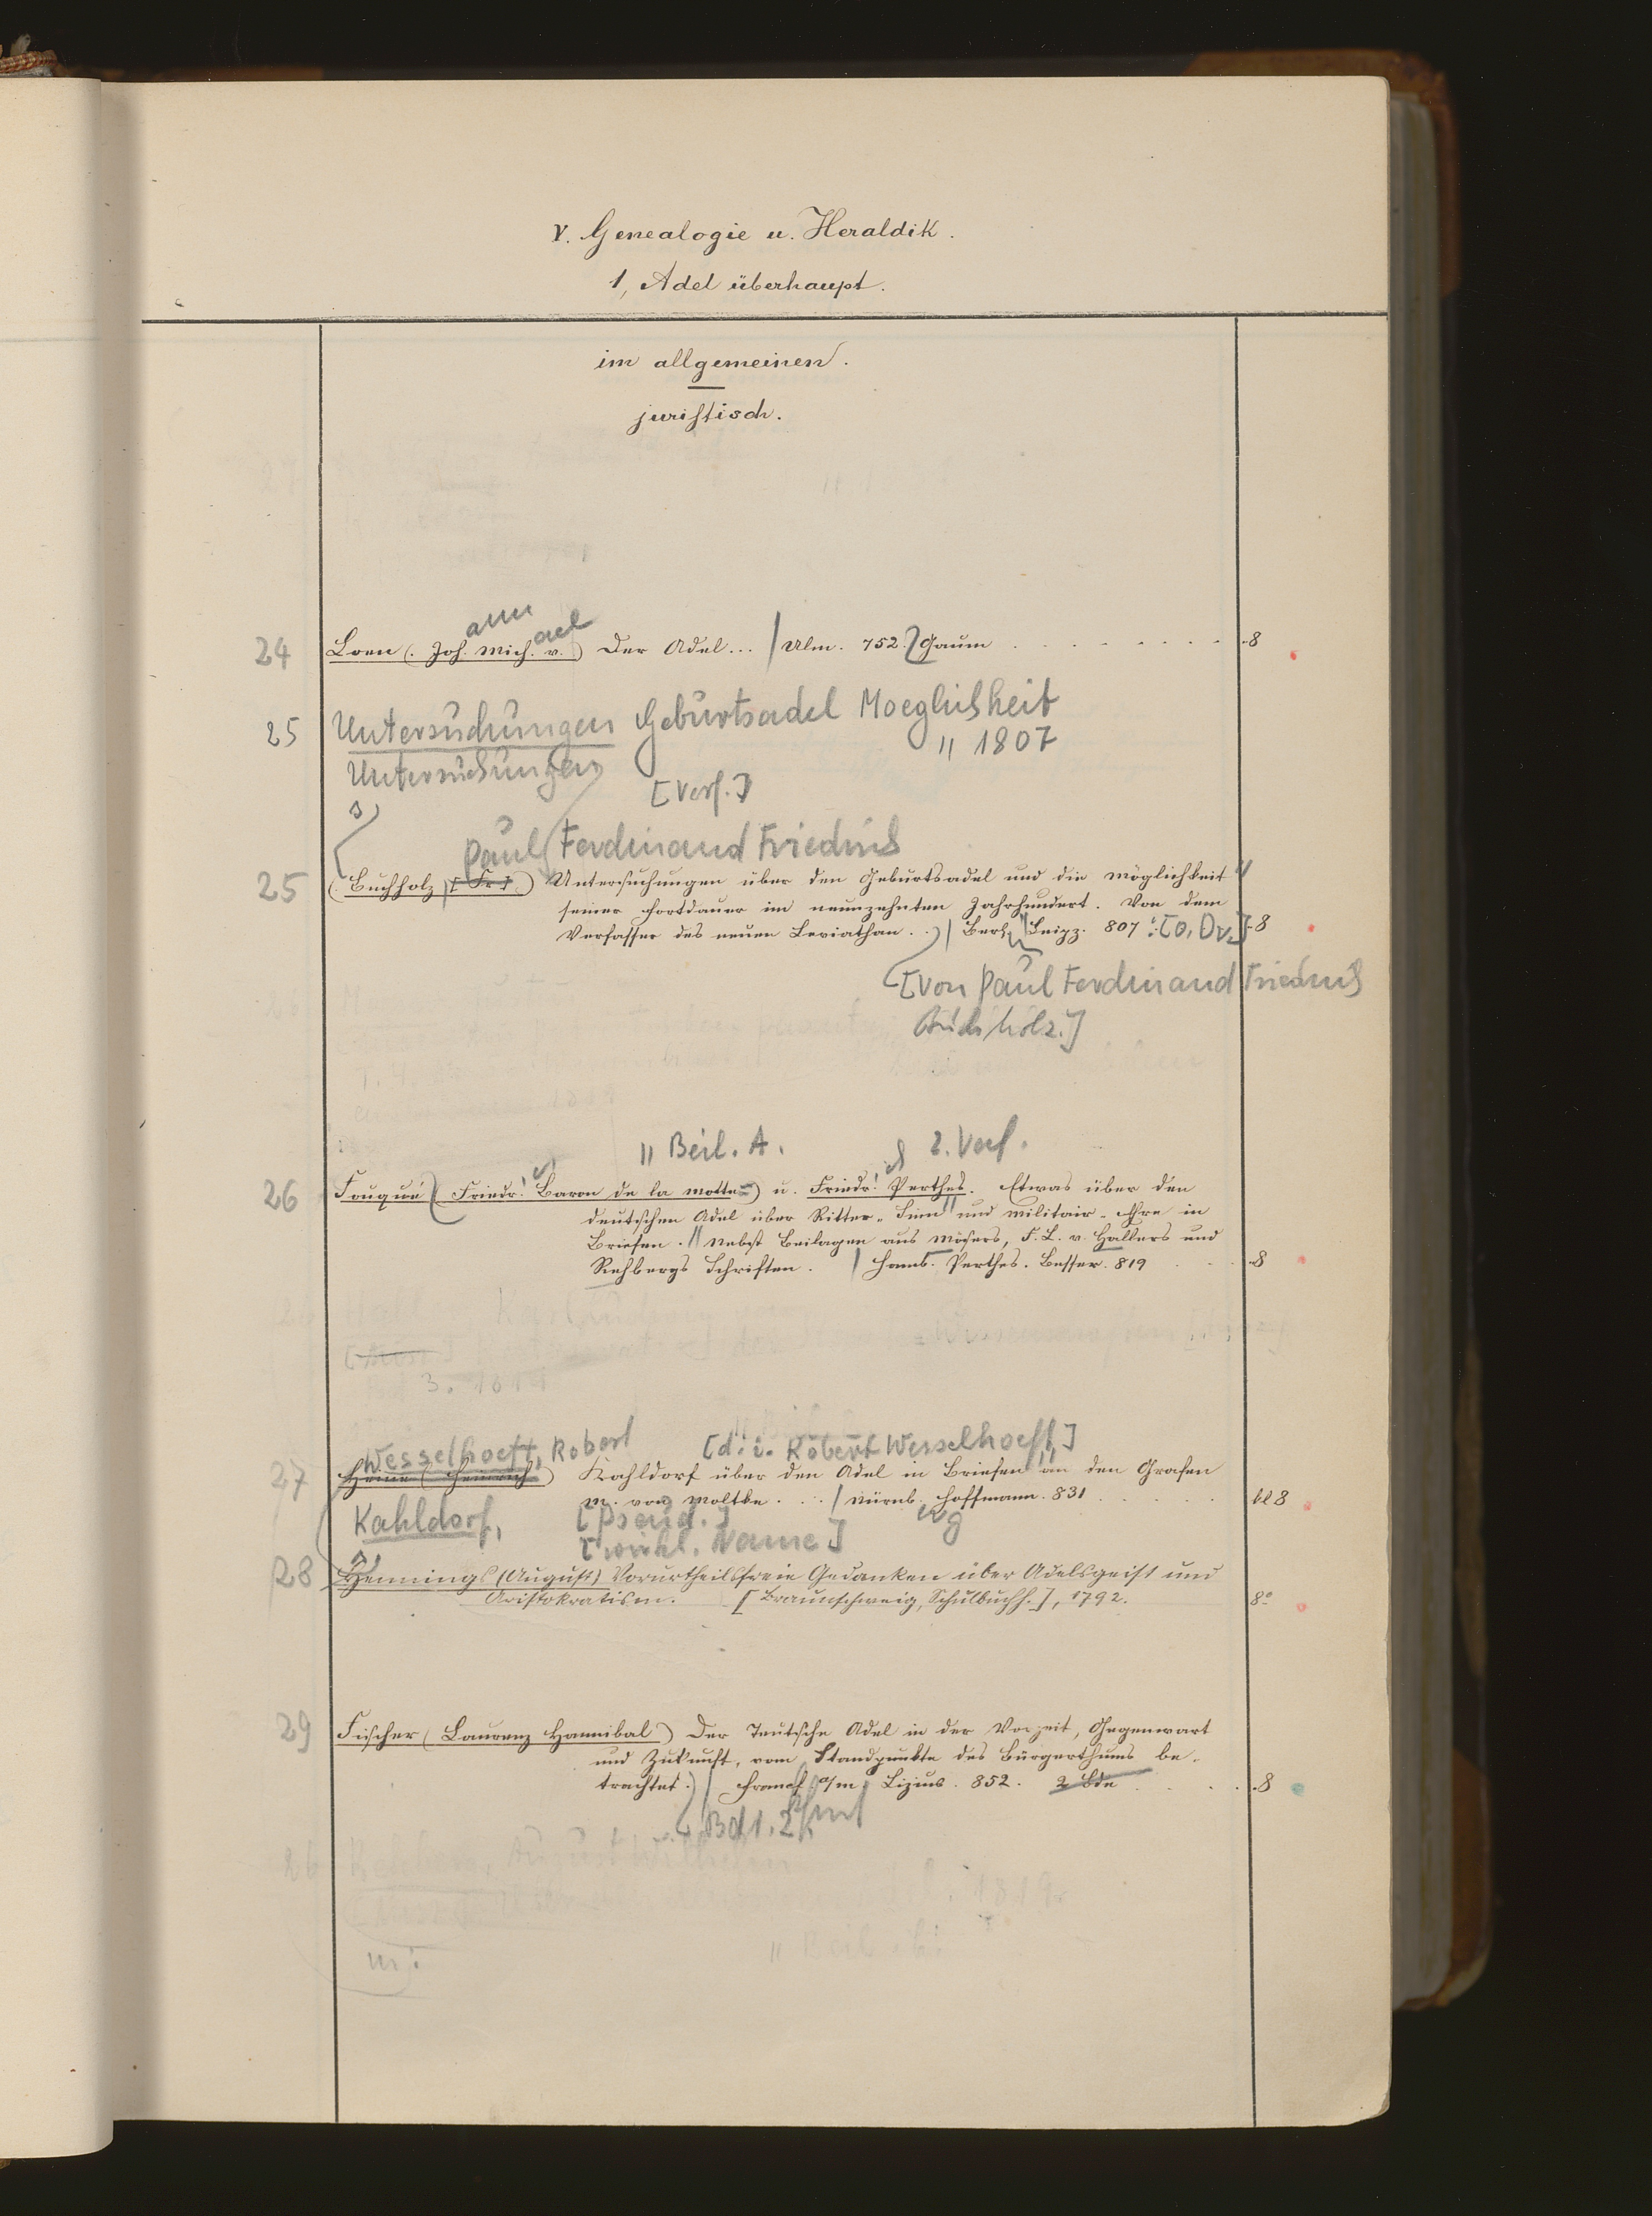 V. Genealogie u. Heraldik.
1, Adel überhaupt.
im allgemeinen.
juristisch.
ann ael
24 Loen (. Joh. Mich. v.) Der Adel... / Ulm. 752. Gaum 8
25 Untersuchungen Geburtsadel Moeglichkeit
" 1807
Untersuchungen
[Verf.]
Paul Ferdinand Friedrich
25 (Buchholz, [Fr.].) Untersuchungen über den Geburtsadel und die Möglichkeit
seiner Fortdauer im neunzehnten Jahrhundert. Von dem
Verfasser des neuen Leviathan. . / Berl. Leipz. 807 : [o. Dr.] 8
[Von Paul Ferdinand Friedrich
Buchholz.]
" Beil. A. 2. Verf.
26 Fouqué (Friedr. Baron de la Motte=) u. Friedr. Perthes. Etwas über den
deutschen Adel über Ritter-Sinn und Militair-Ehre in
Briefen. // Nebst Beilagen aus Mösers, F. L. v. Hallers und
Rehbergs Schriften. / Hamb. Perthes. Besser. 819 8
Wesselhoeft, Robert [d. i. Robert Wesselhoeft]
27 Heine (Heinrich) Kahldorf über den Adel in Briefen an den Grafen
M. von Moltke. . . / Nürnb. Hoffmann. 831 kl 8
Kahldorf, [Pseud.] bg
[wirkl. Name]
28 Hennings (August) Vorurtheilsfreie Gedanken über Adelsgeist und
Aristokratism. [Braunschweig, Schulbuchh.], 1792. 8°
29 Fischer (Laurenz Hannibal) Der Teutsche Adel in der Vorzeit, Gegenwart
und Zukunft, vom Standpunkte des Bürgerthums be-
trachtet.) / Francf a/m Lizius. 852. 2 Bde 8
Bd 1. 2